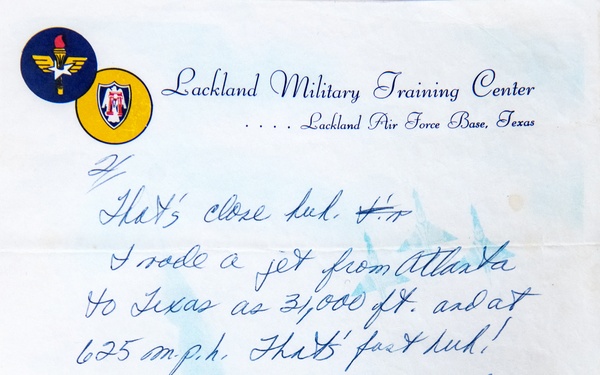 Lackland Military Training Center
.... Lackland Air Force Base, Texas
2/
That's close huh.
I rode a jet from Atlanta
to Texas as 31,000 ft. and at
625 m.p.h. That's fast huh!